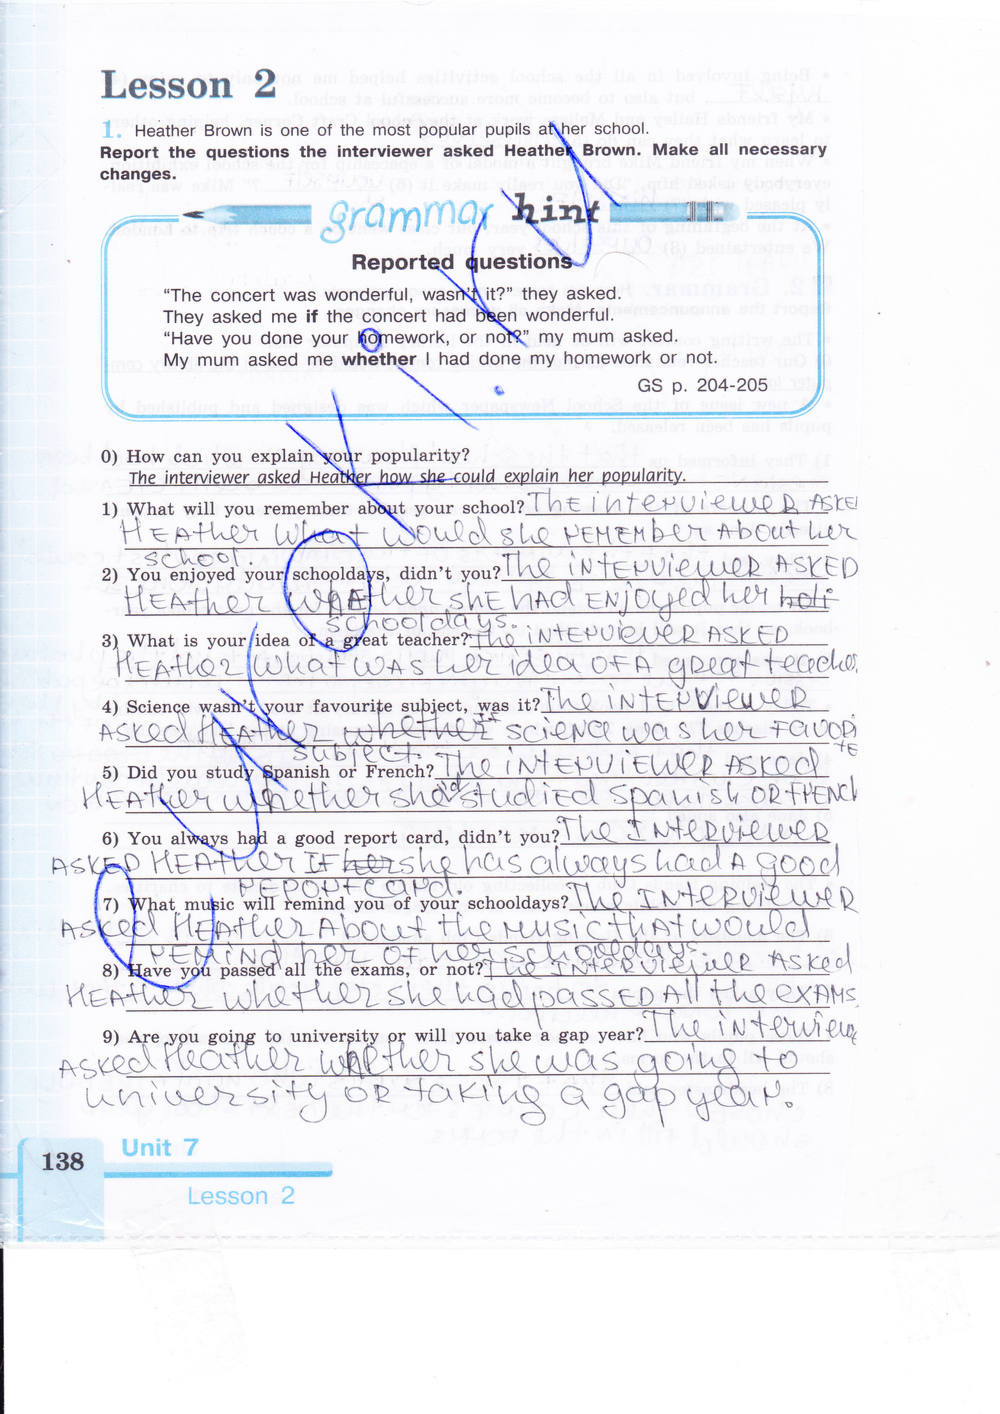 Lesson 2
1. Heather Brown is one of the most popular pupils at her school.
Report the questions the interviewer asked Heather Brown. Make all necessary
changes.
grammar hint
Reported questions
“The concert was wonderful, wasn't it?” they asked.
They asked me if the concert had been wonderful.
“Have you done your homework, or not?” my mum asked.
My mum asked me whether I had done my homework or not.
GS p. 204-205
0) How can you explain your popularity?
The interviewer asked Heather how she could explain her popularity.
1) What will you remember about your school? The interviewer ASKE
HEATHER WHAT would she REMEMBER ABOUT her
school.
2) You enjoyed your schooldays, didn't you? The INTERViewER ASKED
HEATHER WHETHER SHE HAD ENJOYED her
schooldays.
3) What is your idea of a great teacher? The INTERViewER ASKED
HEATHER WHAT WAS her idea OF A great teacher
4) Science wasn't your favourite subject, was it? The INTERVIEWER
ASKED HEATHER whether IF SCIENCE was her FAVORI
TE
subject.
5) Did you study Spanish or French? The INTERVIEWER ASKED
HEATHER whether she studied Spanish OR FRENCH
6) You always had a good report card, didn't you? The INTERViewER
ASKED HEATHER IF her she has always had A good
REPORT CARD.
7) What music will remind you of your schooldays? The INTERViewER
ASKed HEATHER About the MUSIC THAT would
REMIND her OF her schooldays
8) Have you passed all the exams, or not? The INTERVIEWER ASKed
HEATHER whether she had passED All the EXAMS
9) Are you going to university or will you take a gap year? The interview
ASKed Heather whether she was going to
university OR TAKING a gap year.
138
Unit 7
Lesson 2